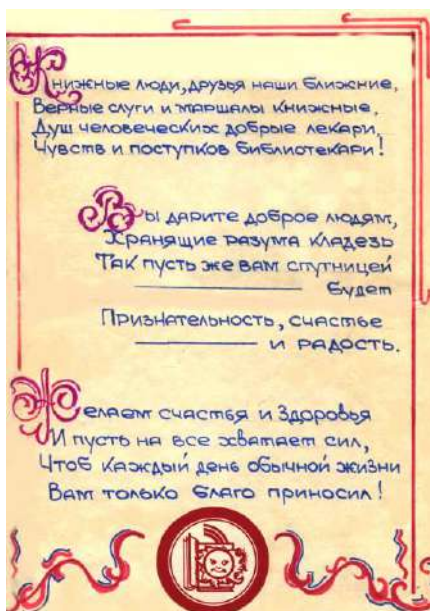 Книжные люди, друзья наши ближние,
Верные слуги и маршалы книжные,
Душ человеческих добрые лекари,
Чувств и поступков библиотекари!
Вы дарите доброе людям,
Хранящие разума кладезь
Так пусть же вам спутницей
будет
Признательность, счастье
и радость.
Желаем счастья и здоровья
И пусть на все хватает сил,
Чтоб каждый день обычной жизни
Вам только благо приносил!